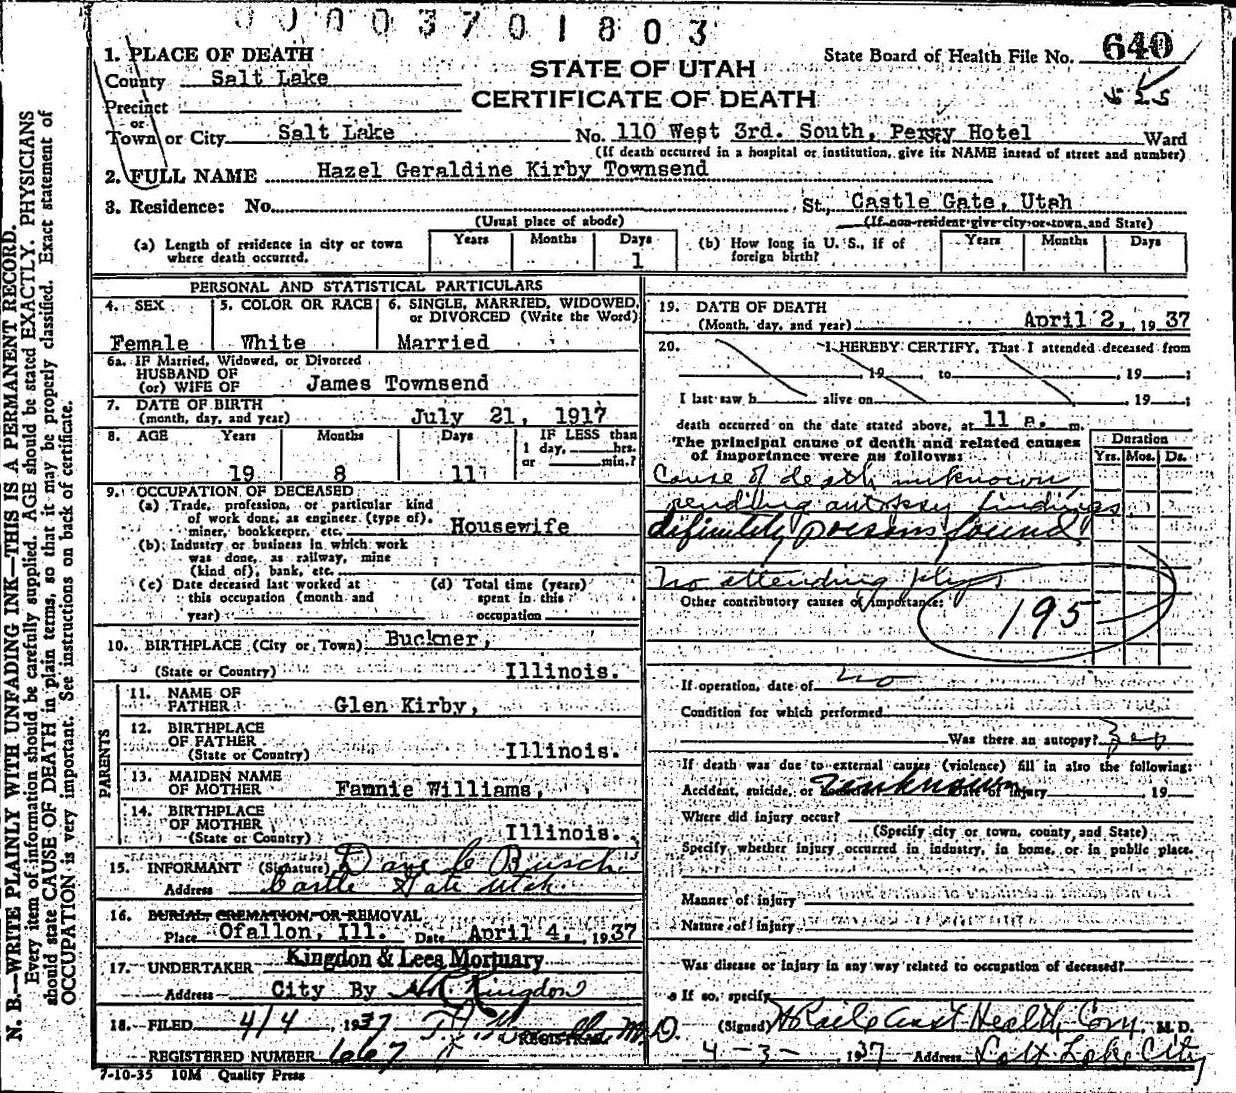 0000370 1803
1. PLACE OF DEATH
County Salt Lake
Precinct
or
Town or City Salt Lake
STATE OF UTAH
CERTIFICATE OF DEATH
State Board of Health File No. 640
No. 110 West 3rd. South, Perry Hotel Ward
(If death occurred in a hospital or institution, give its NAME instead of street and number)
2. FULL NAME Hazel Geraldine Kirby Townsend
3. Residence: No. St., Castle Gate, Utah
(Usual place of abode) (If non-resident give city or town and State)
(a) Length of residence in city or town
where death occurred.
Years Months Days
1
(b) How long in U. S., if of
foreign birth?
Years Months Days
PERSONAL AND STATISTICAL PARTICULARS
4. SEX
Female
5. COLOR OR RACE
White
6. SINGLE, MARRIED, WIDOWED,
or DIVORCED (Write the Word)
Married
6a. IF Married, Widowed, or Divorced
HUSBAND OF
(or) WIFE OF James Townsend
7. DATE OF BIRTH
(month, day, and year) July 21, 1917
8. AGE Years Months Days
19 8 11
IF LESS than
1 day, hrs.
or min.?
9. OCCUPATION OF DECEASED
(a) Trade, profession, or particular kind
of work done, as engineer (type of),
miner, bookkeeper, etc. Housewife
(b) Industry or business in which work
was done, as railway, mine
(kind of), bank, etc.
(c) Date deceased last worked at
this occupation (month and
year)
(d) Total time (years)
spent in this
occupation
10. BIRTHPLACE (City or Town) Buckner,
(State or Country) Illinois.
PARENTS
11. NAME OF
FATHER Glen Kirby,
12. BIRTHPLACE
OF FATHER
(State or Country) Illinois.
13. MAIDEN NAME
OF MOTHER Fannie Williams,
14. BIRTHPLACE
OF MOTHER
(State or Country) Illinois.
15. INFORMANT (Signature) Dave C Busch
Address Castle Gate Utah
16. BURIAL, CREMATION, OR REMOVAL
Place Ofallon, Ill. Date April 4, 1937
17. UNDERTAKER Kingdon & Lees Mortuary
Address City By Kingdon
18. FILED 4/4, 1937 M.D.
REGISTRAR
REGISTERED NUMBER 667
7-10-35 10M Quality Press
19. DATE OF DEATH
(Month, day, and year) April 2, 1937
20. I HEREBY CERTIFY, That I attended deceased from
, 19 to , 19 ;
I last saw h alive on , 19 ;
death occurred on the date stated above, at 11 a. m.
The principal cause of death and related causes
of importance were as follows:
Duration
Yrs. Mos. Ds.
Cause of death unknown,
pending autopsy findings
definitely poisons found
No attending phys
Other contributory causes of importance:
195
If operation, date of no
Condition for which performed
Was there an autopsy?
If death was due to external causes (violence) fill in also the following:
Accident, suicide, or unknown Date of injury 19
Where did injury occur?
(Specify city or town, county, and State)
Specify whether injury occurred in industry, in home, or in public place.
Manner of injury
Nature of injury
Was disease or injury in any way related to occupation of deceased?
If so, specify
(Signed) Asst Health Com, M. D.
4-3- 1937 Address Salt Lake City
N. B.—WRITE PLAINLY WITH UNFADING INK—THIS IS A PERMANENT RECORD.
Every item of information should be carefully supplied. AGE should be stated EXACTLY. PHYSICIANS
should state CAUSE OF DEATH in plain terms, so that it may be properly classified. Exact statement of
OCCUPATION is very important. See instructions on back of certificate.